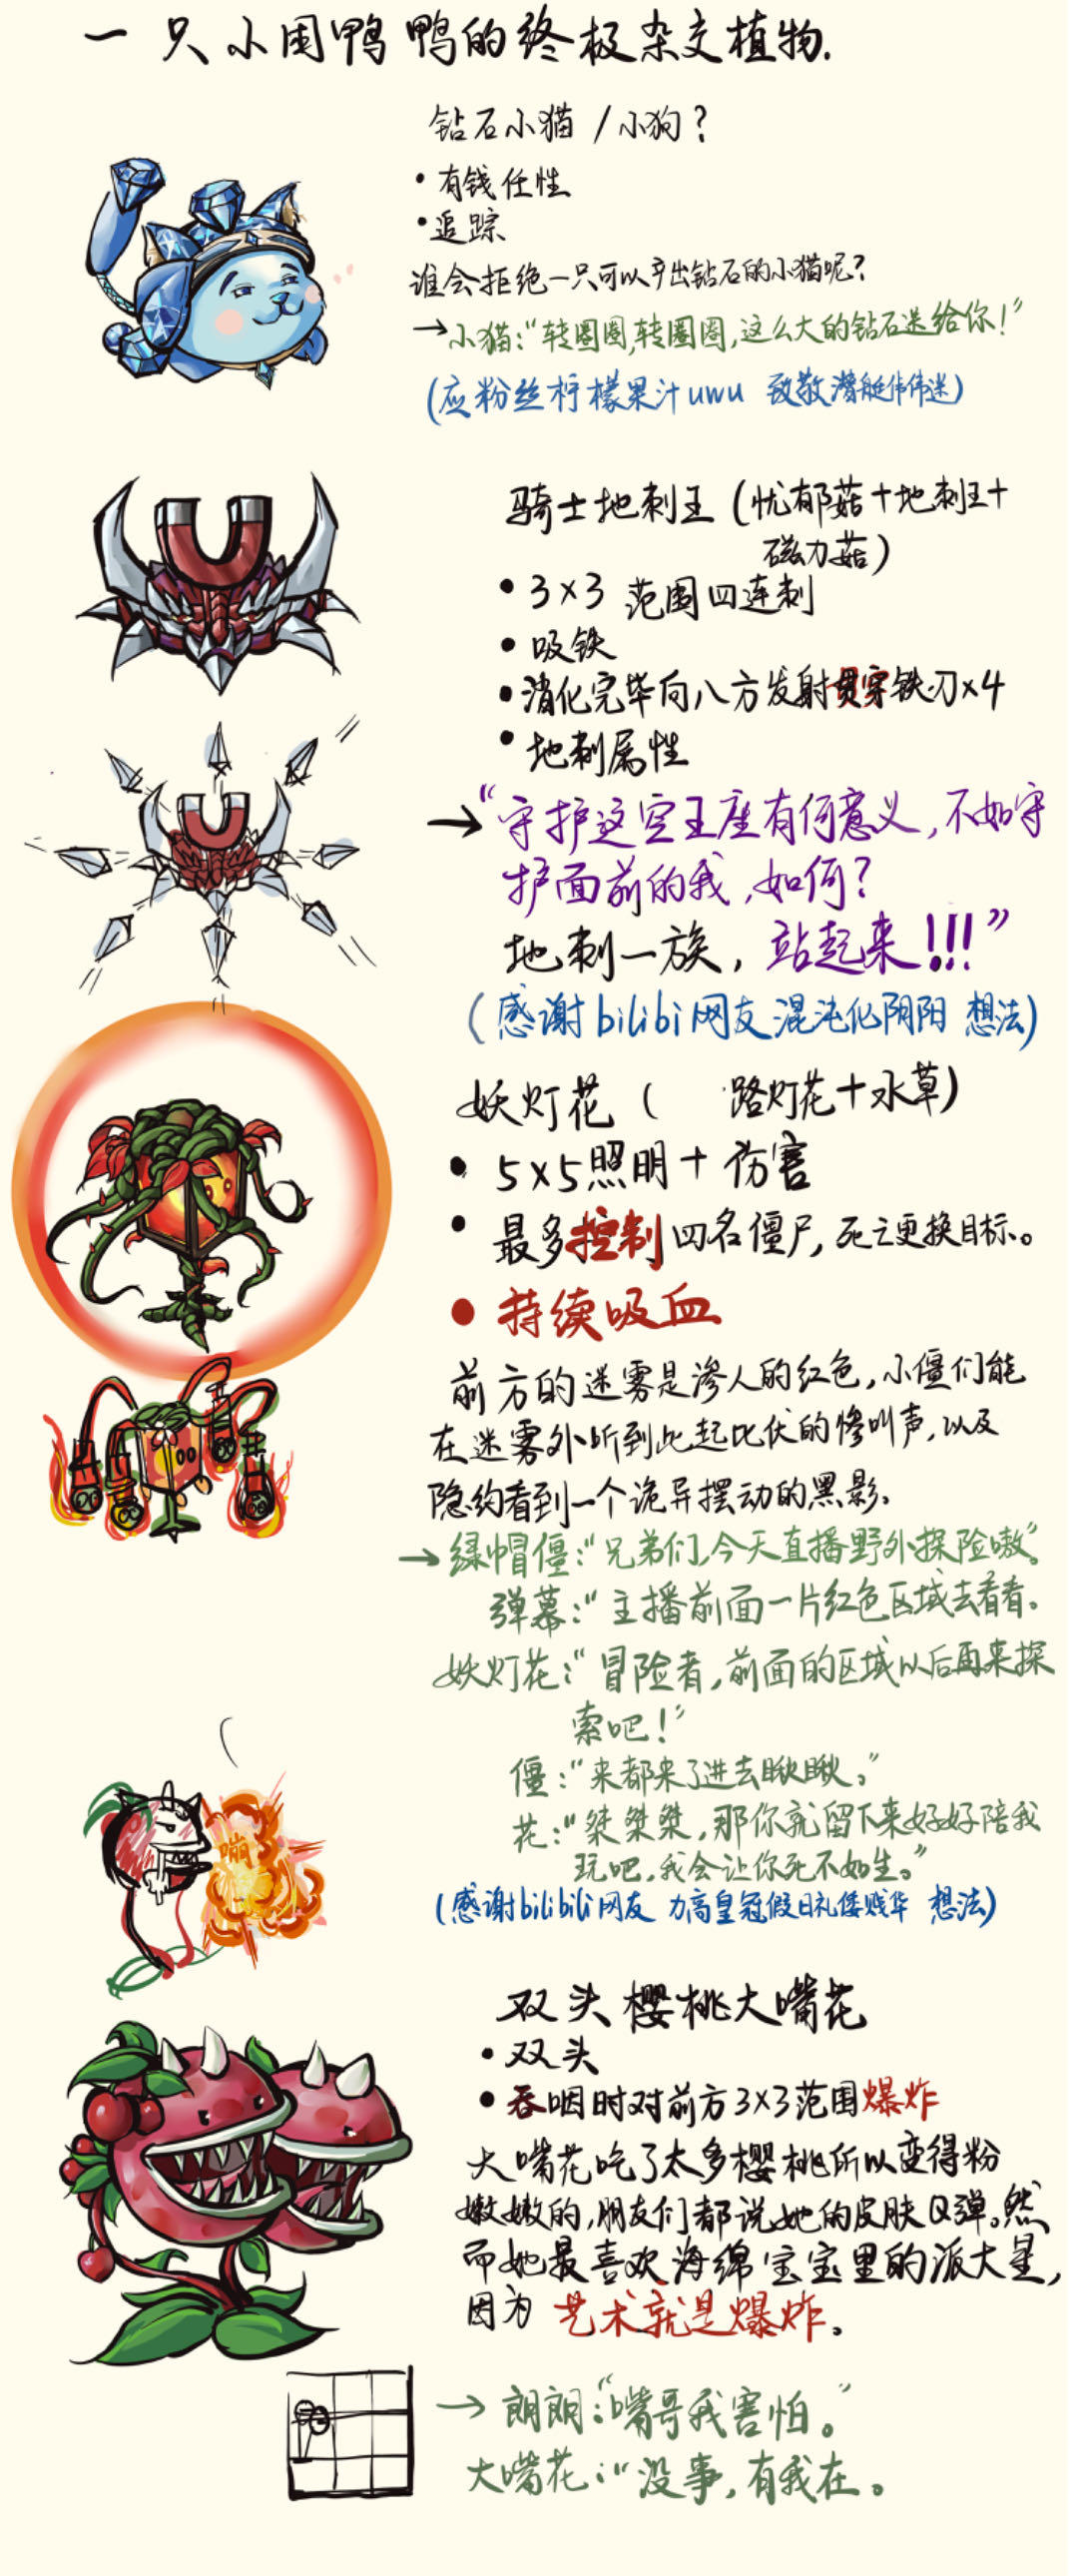 一只小困鸭鸭的终极杂交植物.
钻石小猫/小狗?
•有钱任性
•追踪
谁会拒绝一只可以产出钻石的小猫呢?
→小猫:"转圈圈,转圈圈,这么大的钻石送给你!"
(应粉丝柠檬果汁uwu 致敬潜艇伟伟迷)
骑士地刺王(忧郁菇+地刺王+
磁力菇)
•3×3 范围四连刺
•吸铁
•消化完毕向八方发射贯穿铁刀×4
•地刺属性
→"守护这空王座有何意义,不如守
护面前的我,如何?
地刺一族,站起来!!!"
(感谢bilibi网友混沌化阴阳 想法)
妖灯花( 路灯花+水草)
•5×5照明+伤害
•最多控制四名僵尸,死亡更换目标。
•持续吸血
前方的迷雾是渗人的红色,小僵们能
在迷雾外听到此起比伏的惨叫声,以及
隐约看到一个诡异摆动的黑影.
→绿帽僵:"兄弟们,今天直播野外探险嗷"。
弹幕:"主播前面一片红色区域去看看.
妖灯花:"冒险者,前面的区域以后再来探
索吧!"
僵:"来都来了进去瞅瞅。"
花:"桀桀桀,那你就留下来好好陪我
玩吧,我会让你死不如生。"
(感谢bilibili网友 力高皇冠假日礼偻贱华 想法)
嘣
双头樱桃大嘴花
•双头
•吞咽时对前方3×3范围爆炸
大嘴花吃了太多樱桃所以变得粉
嫩嫩的,朋友们都说她的皮肤Q弹。然
而她最喜欢海绵宝宝里的派大星,
因为 艺术就是爆炸。
→朗朗:"嘴哥我害怕。"
大嘴花:"没事,有我在。